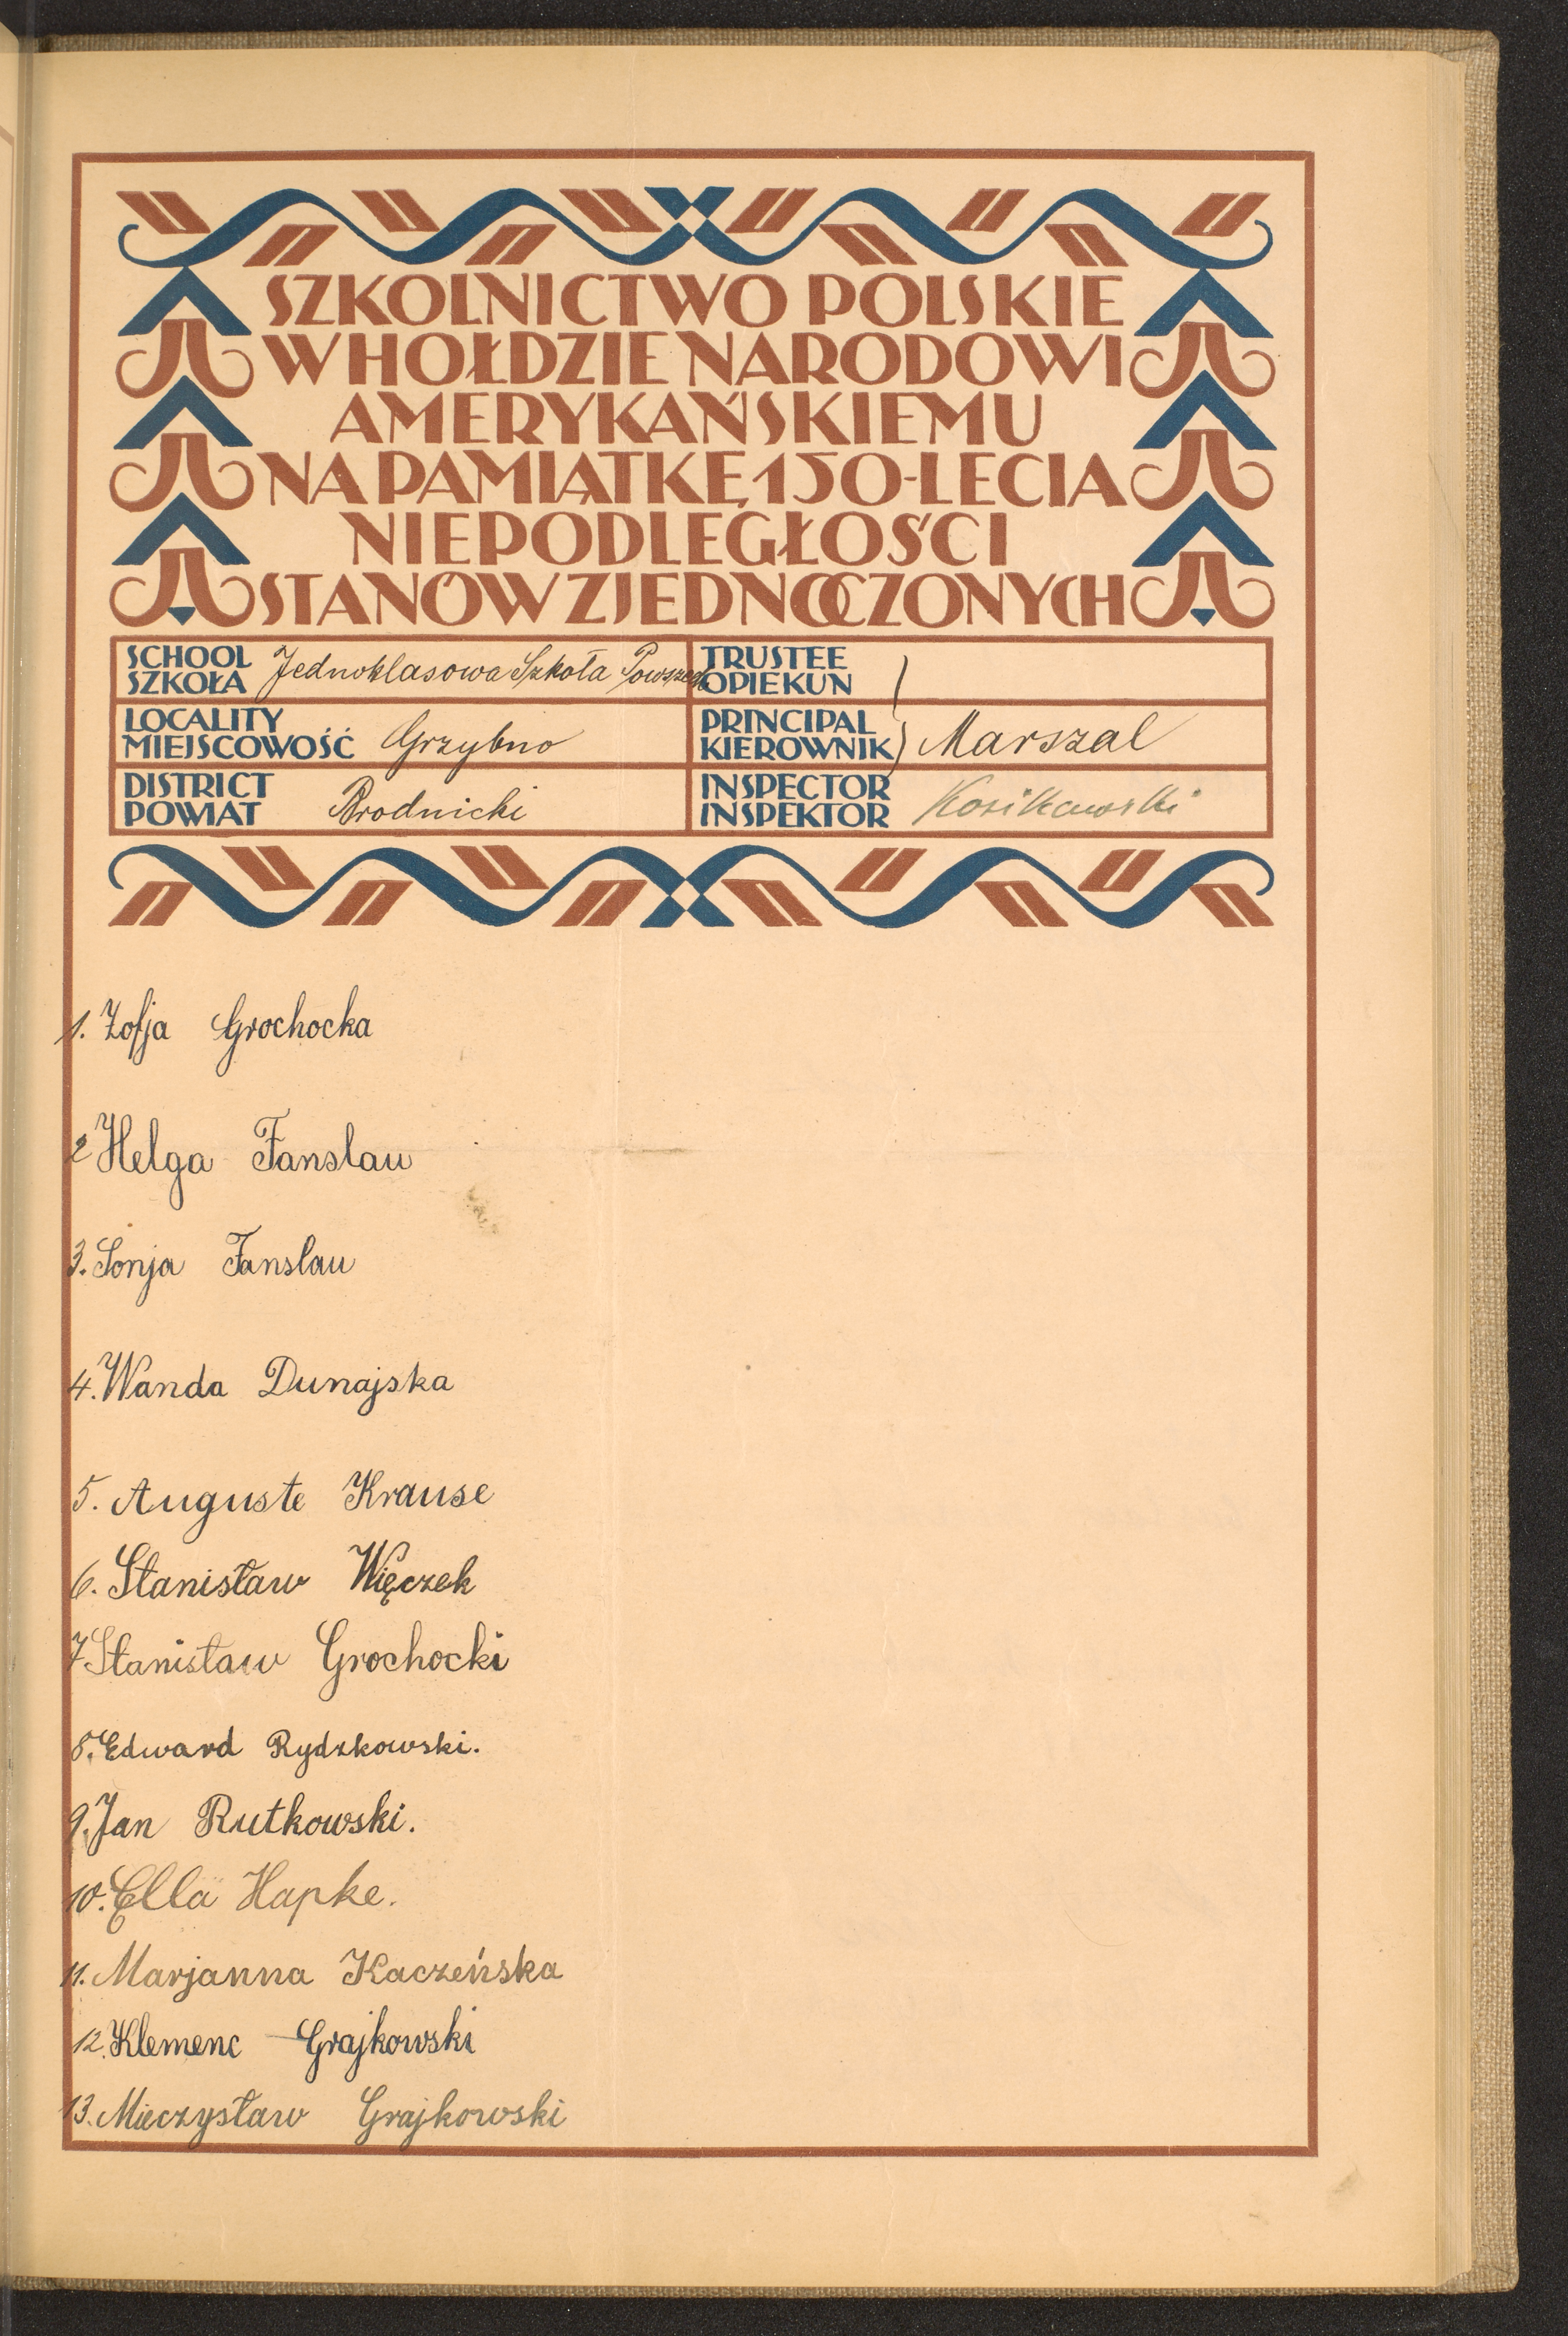 SZKOLNICTWO POLSKIE
W HOŁDZIE NARODOWI
AMERYKAŃSKIEMU
NA PAMIĄTKĘ 150-LECIA
NIEPODLEGŁOŚCI
STANÓW ZJEDNOCZONYCH
SCHOOL
SZKOŁA Jednoklasowa Szkoła Powszech.
TRUSTEE
OPIEKUN
LOCALITY
MIEJSCOWOŚĆ Grzybno
PRINCIPAL
KIEROWNIK Marszal
DISTRICT
POWIAT Brodnicki
INSPECTOR
INSPEKTOR
1. Zofja Grochocka
2 Helga Fanslau
3. Sonja Fanslau
4. Wanda Dunajska
5. Auguste Krause
6. Stanisław Więczek
7 Stanisław Grochocki
8. Edward Rydzkowski.
9. Jan Rutkowski.
10. Ella Hapke.
11. Marjanna Kaczeńska
12. Klemenc Grajkowski
13. Mieczysław Grajkowski